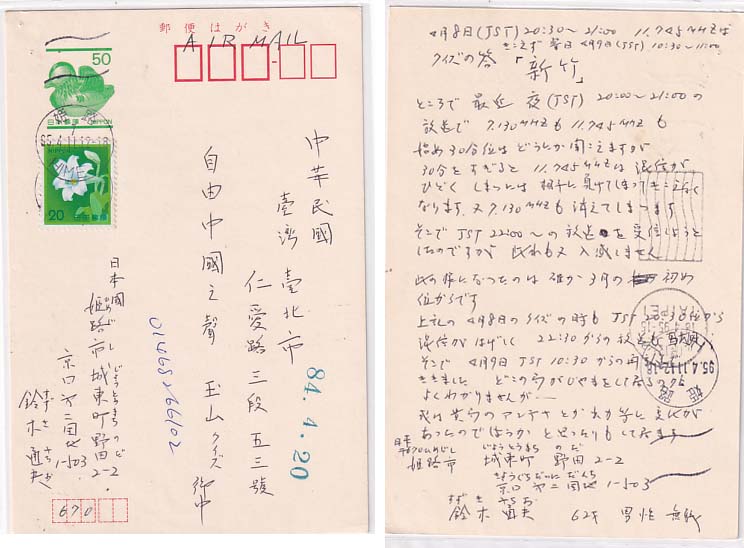 郵便はがき
AIR MAIL
50
日本郵便 NIPPON
姫路
95.4.11 12-18
HIMEJI
20
日本郵便
中華民國
臺灣 臺北市
仁愛路三段五三號
自由中國之聲 玉山クイズ 御中
84.4.20
日本國
姫路市城東町野田2-2
京口第二団地1-503
鈴木通夫
670
4月8日(JST) 20:30〜21:00 11.745MHZは
きこえず 翌日4月9日(JST) 10:30〜11:00
クイズの答「新竹」
ところで 最近 夜(JST) 20:00〜21:00の
放送で 7.130MHZも 11.745MHZも
始め30分位は どうにか 聞こえますが
30分をすぎると 11.745MHZは 混信が
ひどく しまいには 相手に負けてしまって きこえなく
なります。又 7.130MHZも 消えてしまいます
そこで JST 22:00〜の放送を受信しようと
したのですが 此れも又 入感しません
此の様になったのは 確か3月の 初め
位からです
上記の4月8日のクイズの時も JST 20:30分から
混信がはげしく 22:30からの放送も
そこで 4月9日 JST 10:30からの
ききました どこの局がじゃまをして居るのか
よくわかりませんが…
アンテナ
あったのでは
日本
姫路市 城東町 野田2-2
じょうとうまち のだ
京口第二団地 1-503
きょうぐちだいにだんち
すずき みちお
鈴木通夫 62才 男性 無職
TAIPEI
95.4.11 12-18
姫路